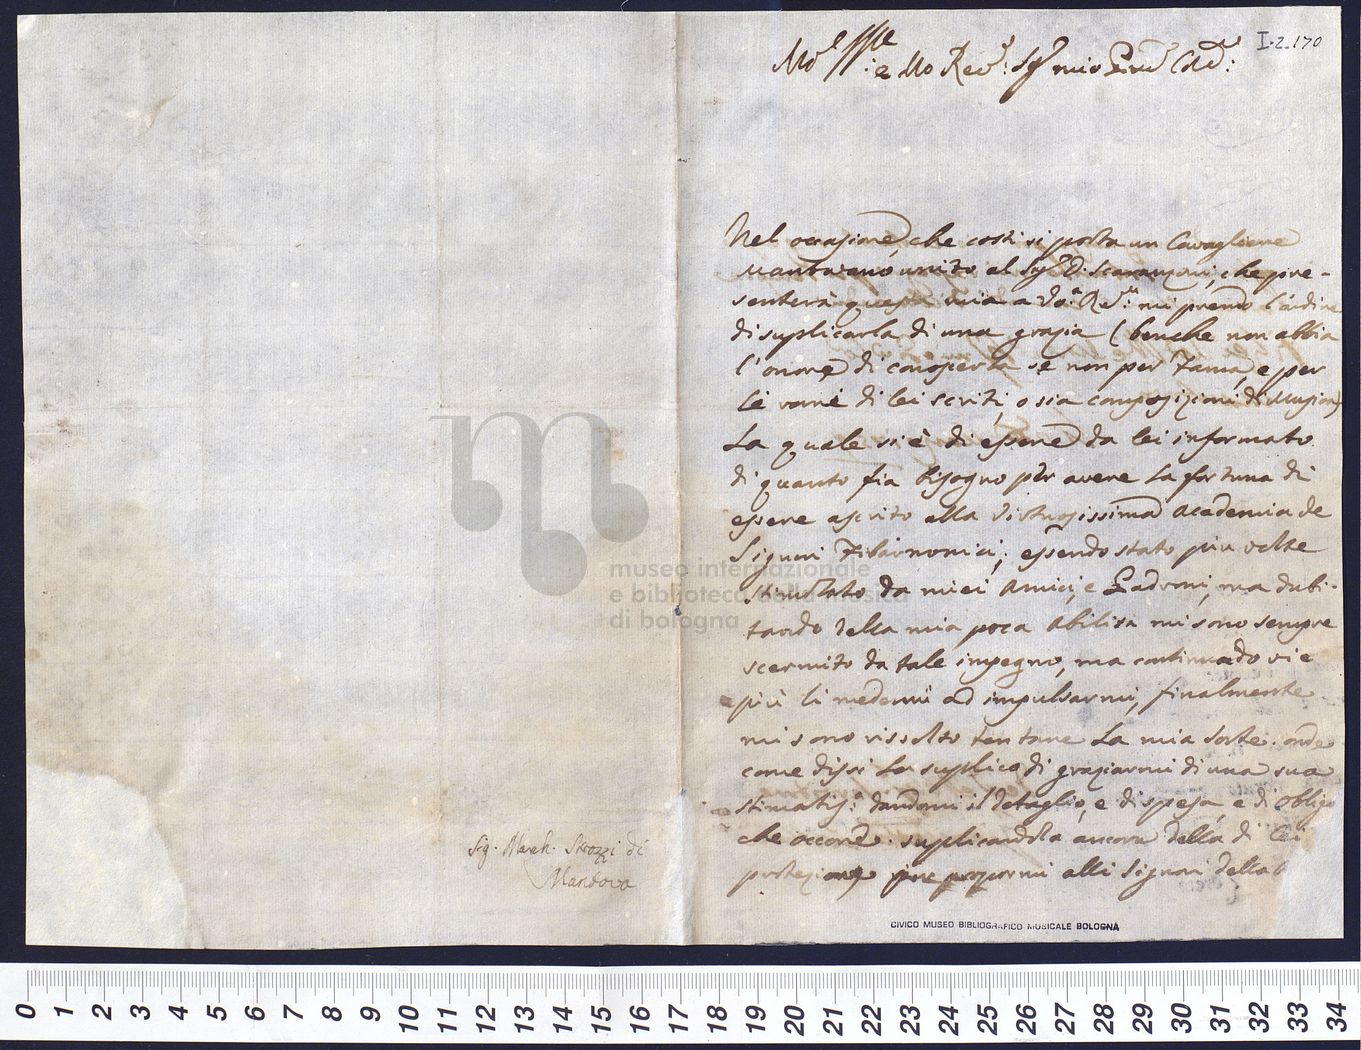 I.2.170
Mo Ille: e Mo Revdo: Sigr mio Pron Colmo:
Nel occasione, che costi si porta un Cavagliere
Mantovano unito al Sigr D. Scaranzoni, che pre-
senterà questa mia a Vo.a Rev.a mi prendo l'ardire
di suplicarla di una grazia (benche non abbia
l'onore di conoscerla se non per Fama, e per
le varie di lei scriti, o sia composizioni di Musica)
La quale si è di essere da lei informato
di quanto fia bisogno per avere la fortuna di
essere ascrito alla Virtuosissima Academia de
Signori Filarmonici; essendo stato piu volte
stimolato da miei Amici, e Padroni, ma dubi-
tando della mia poca abilità mi sono sempre
scermito da tale impegno, ma continuado vie
più li medemi ad impulsarmi, finalmente
mi sono rissolto tentare la mia sorte. onde
come dissi la suplico di graziarmi di una sua
stimatis.a dandomi il detaglio, e di spesa, e di obligo
che occore. suplicandola ancora della di Lei
protezione per propormi alli Signori della
Sig. March. Strozzi di
Mantova
CIVICO MUSEO BIBLIOGRAFICO MUSICALE BOLOGNA
museo internazionale
e biblioteca della musica
di bologna
0 1 2 3 4 5 6 7 8 9 10 11 12 13 14 15 16 17 18 19 20 21 22 23 24 25 26 27 28 29 30 31 32 33 34